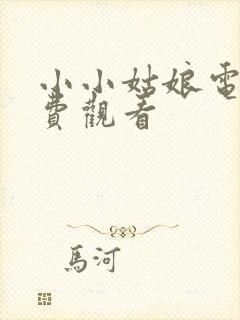 小小姑娘電
費觀看
馬河